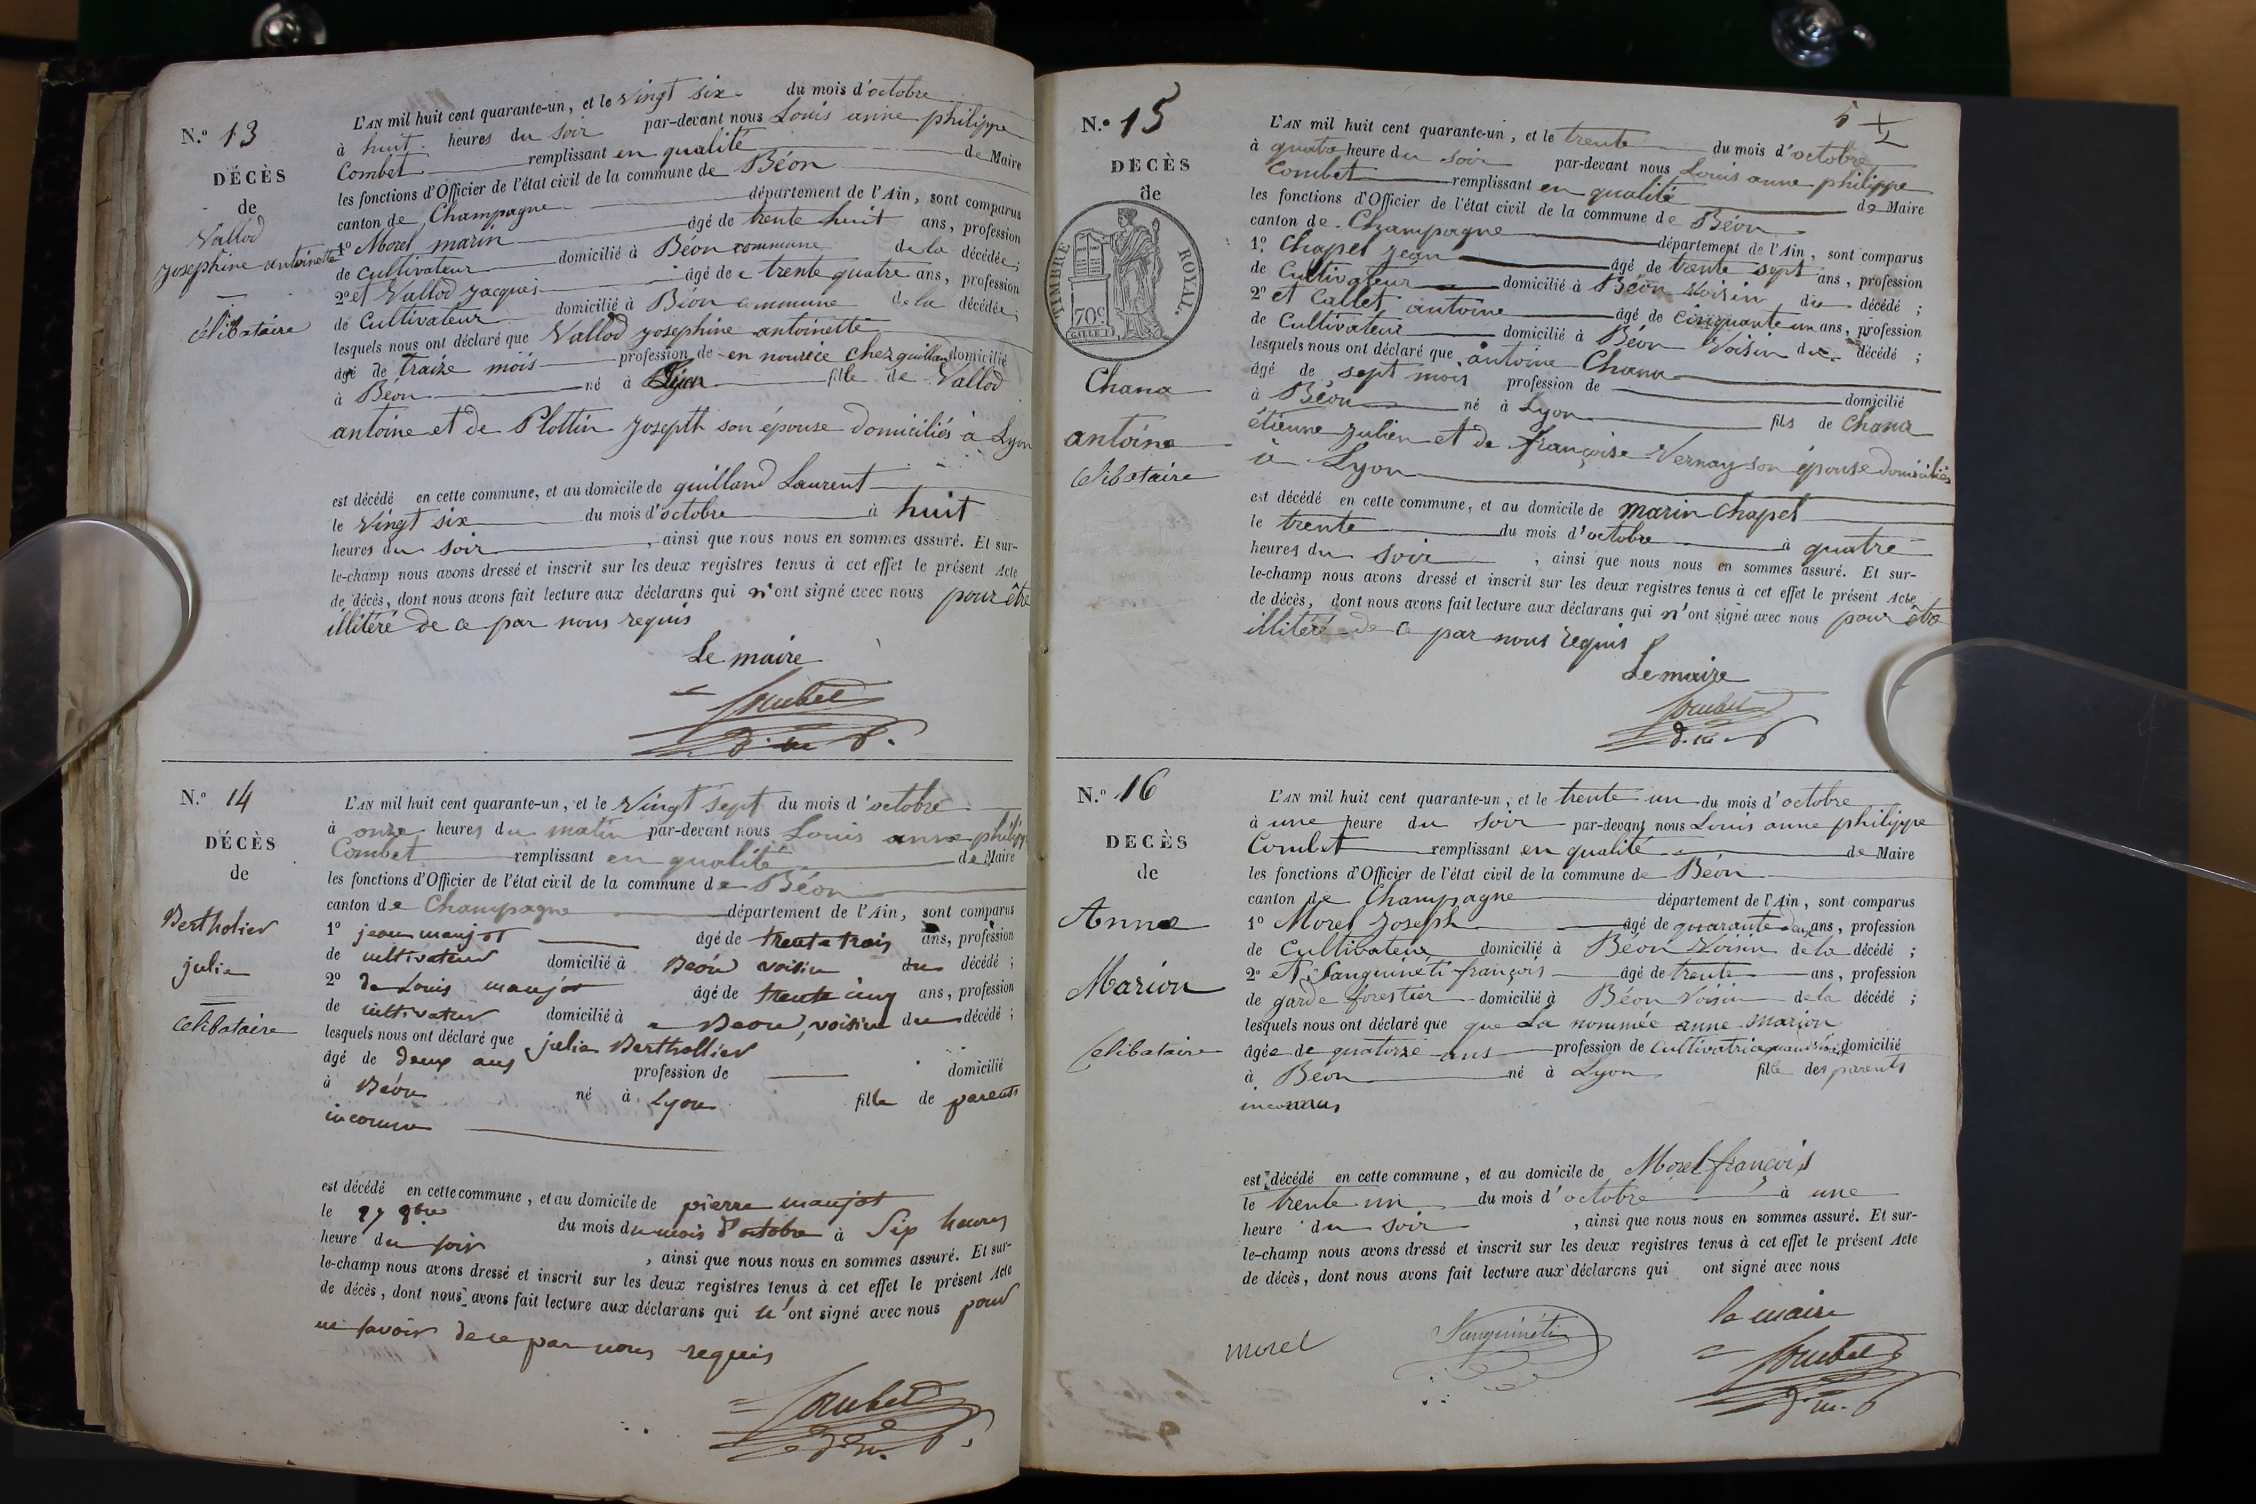 N.º 13
DÉCÈS
de
Vallod
Josephine antoinette
célibataire
L'AN mil huit cent quarante-un, et le vingt six du mois d'octobre
à huit heures du soir par-devant nous Louis anne philippe
Combet remplissant en qualité de Maire
les fonctions d'Officier de l'état civil de la commune de Béon
canton de Champagne département de l'Ain, sont comparus
1º Morel marin âgé de trente huit ans, profession
de cultivateur domicilié à Béon commune de la décédée;
2º et Vallod Jacques âgé de trente quatre ans, profession
de Cultivateur domicilié à Béon commune de la décédée;
lesquels nous ont déclaré que Vallod Josephine antoinette
âgé de traize mois profession de en nourice chez guilland domicilié
à Béon né à Lyon fille de Vallod
antoine et de Plottin Joseptt son épouse domiciliés à Lyon
est décédé en cette commune, et au domicile de guilland Laurent
le vingt six du mois d'octobre à huit
heures du soir, ainsi que nous nous en sommes assuré. Et sur-
le-champ nous avons dressé et inscrit sur les deux registres tenus à cet effet le présent Acte
de décès, dont nous avons fait lecture aux déclarans qui n'ont signé avec nous pour être
illitéré de ce par nous requis
Le maire
Combet
d. m.
N.º 14
DÉCÈS
de
Bertholier
julie
Celibataire
L'AN mil huit cent quarante-un, et le vingt sept du mois d'octobre
à onze heures du matin par-devant nous Louis anne philippe
Combet remplissant en qualité de Maire
les fonctions d'Officier de l'état civil de la commune de Béon
canton de Champagne département de l'Ain, sont comparus
1º jean maujot âgé de trente trois ans, profession
de cultivateur domicilié à Béon voisin du décédé;
2º de Louis maujot âgé de trente cinq ans, profession
de cultivateur domicilié à Beon, voisin du décédé;
lesquels nous ont déclaré que julie Berthollier
âgé de deux ans profession de domicilié
à Béon né à Lyon fille de parents
inconnu
est décédé en cette commune, et au domicile de pierre maujot
le 27 8bre du mois du mois d'octobre à Six heures
heure du soir, ainsi que nous nous en sommes assuré. Et sur-
le-champ nous avons dressé et inscrit sur les deux registres tenus à cet effet le présent Acte
de décès, dont nous avons fait lecture aux déclarans qui n'ont signé avec nous pour
ne savoir de ce par nous requis
Combet
N.º 15
DECÈS
de
TIMBRE ROYAL.
70c
Chana
antoine
Celibataire
L'AN mil huit cent quarante-un, et le trente du mois d'octobre
à quatre heure du soir par-devant nous Louis anne philippe
Combet remplissant en qualité de Maire
les fonctions d'Officier de l'état civil de la commune de Béon
canton de Champagne département de l'Ain, sont comparus
1º Chapel Jean âgé de trente sept ans, profession
de Cultivateur domicilié à Béon Voisin du décédé;
2º et Callet antoine âgé de cinquante un ans, profession
de Cultivateur domicilié à Béon Voisin du décédé;
lesquels nous ont déclaré que antoine Chana
âgé de sept mois profession de domicilié
à Béon né à Lyon fils de Chana
étienne Julien et de françoise Vernay son épouse domiciliés
à Lyon
est décédé en cette commune, et au domicile de marin Chapel
le trente du mois d'octobre à quatre
heures du soir, ainsi que nous nous en sommes assuré. Et sur-
le-champ nous avons dressé et inscrit sur les deux registres tenus à cet effet le présent Acte
de décès, dont nous avons fait lecture aux déclarans qui n'ont signé avec nous pour être
illitéré de ce par nous requis
Le maire
Combet
N.º 16
DECÈS
de
Anne
Marion
Celibataire
L'AN mil huit cent quarante-un, et le trente un du mois d'octobre
à une heure du soir par-devant nous Louis anne philippe
Combet remplissant en qualité de Maire
les fonctions d'Officier de l'état civil de la commune de Béon
canton de Champagne département de l'Ain, sont comparus
1º Morel Joseph âgé de quarante deux ans, profession
de Cultivateur domicilié à Béon Voisin de la décédé;
2º et Sanguinéti françois âgé de trente ans, profession
de garde forestier domicilié à Béon Voisin de la décédé;
lesquels nous ont déclaré que que La nommée anne Marion
âgée de quatorze ans profession de Cultivatrice domicilié
à Béon né à Lyon fille des parents
inconnus
est décédé en cette commune, et au domicile de Morel françois
le trente un du mois d'octobre à une
heure du soir, ainsi que nous nous en sommes assuré. Et sur-
le-champ nous avons dressé et inscrit sur les deux registres tenus à cet effet le présent Acte
de décès, dont nous avons fait lecture aux déclarans qui ont signé avec nous
le maire
morel Sanguinéti Combet